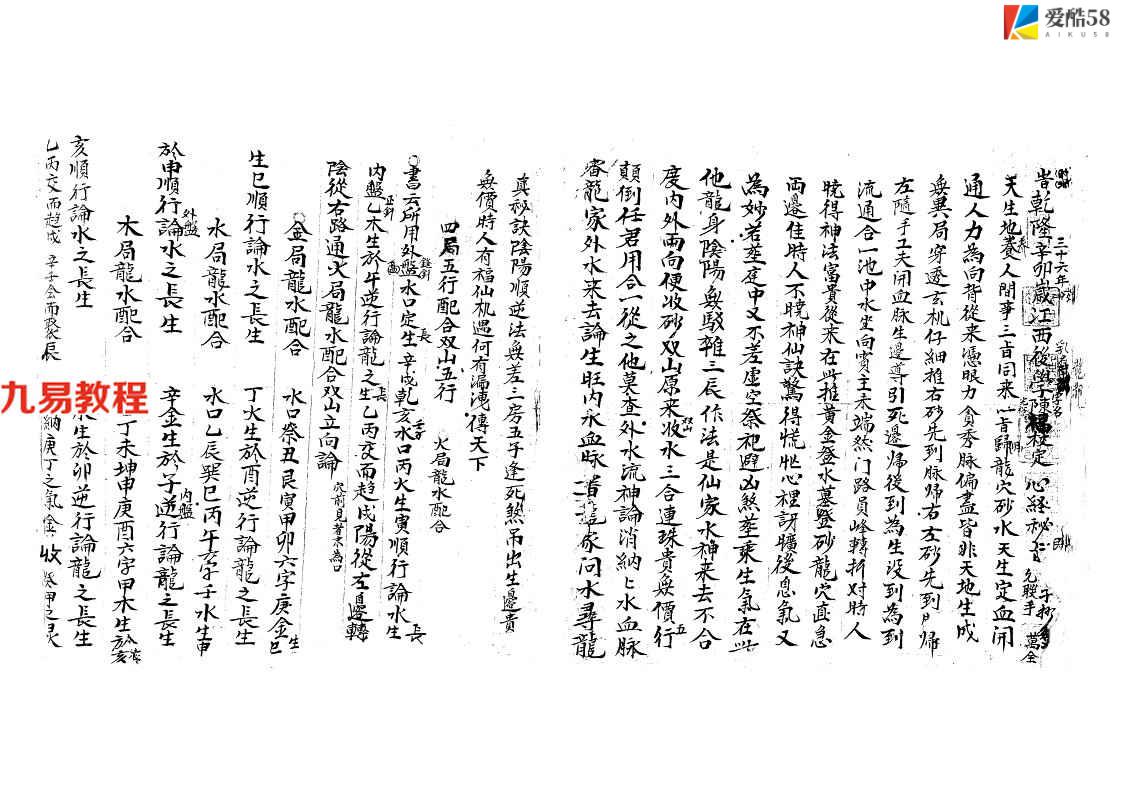 爱酷58
AIKU58
三十六年
旹乾隆辛卯歲江西後學陳 校定 心经秘
天生地養人間事三百同来一旨歸龍穴砂水天生定血開
通人力為向背從来憑眼力貪秀脉偏盡皆非天地生成
無異局穿透玄机仔細推右砂先到脉歸右左砂先到歸
左隨手工夫開血脉生邊尊引死邊歸後到為生没到為到
流通合一池中水坐向賓主末端然门路員峰轉折对時人
曉得神法富貴從来在此推黄金登水墓登砂龍穴直急
両邊佳時人不曉神仙訣驚得慌忙心裡訝曠後息氣又
為妙若葬庭中又不差虚空祭祀避凶煞葬乘生氣在此
他龍身陰陽無駁雜三辰作法是仙家水神来去不合
度内外両向便收砂双山原来收水三合連珠貴無價行
顛倒任君用合一從之他莫查外水流神論消納内水血脉
審龍家外水来去論生旺内水血脉 家问水尋龍
真秘訣陰陽順逆法無差三房五子逢死煞吊出生邊貴
無價時人有福仙机遇何有漏洩傳天下
四局五行配合双山五行
火局龍水配合
書云所用外盤水口定生辛戌乾亥水口丙火生寅順行論水生
内盤乙木生於午逆行論龍之生乙丙交而趋戌陽從左邊轉
陰從右路通火局龍水配合双山立向論
金局龍水配合 水口癸丑艮寅甲卯六字庚金
生巳順行論水之長生 丁火生於酉逆行論龍之長生
水局龍水配合 水口乙辰巽巳丙午六字壬水生
於申順行論水之長生 辛金生於子逆行論龍之長生
木局龍水配合 丁未坤申庚酉六字甲木生於
亥順行論水之長生 生於卯逆行論龍之長生
乙丙交而趋戌 辛壬会而聚辰 納庚丁之氣金 收癸甲之灵
九易教程